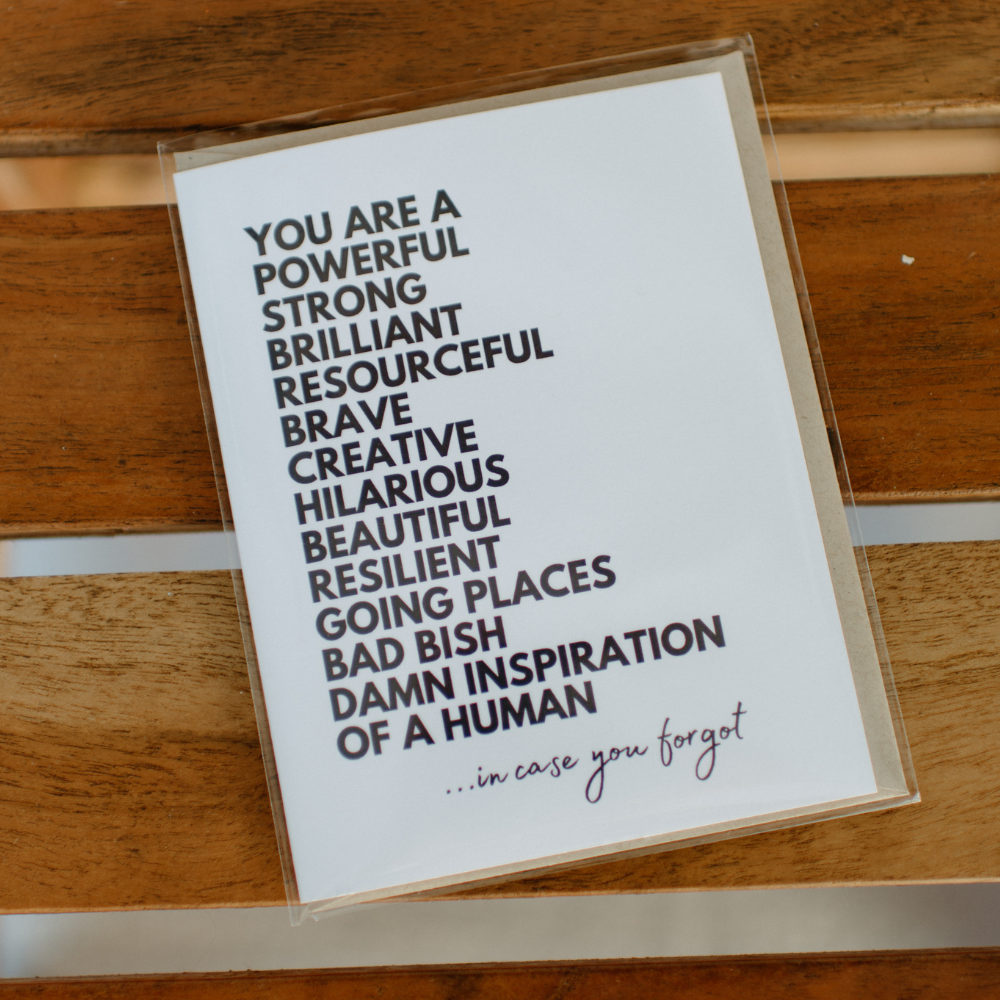 YOU ARE A
POWERFUL
STRONG
BRILLIANT
RESOURCEFUL
BRAVE
CREATIVE
HILARIOUS
BEAUTIFUL
RESILIENT
GOING PLACES
BAD BISH
DAMN INSPIRATION
OF A HUMAN
...in case you forgot